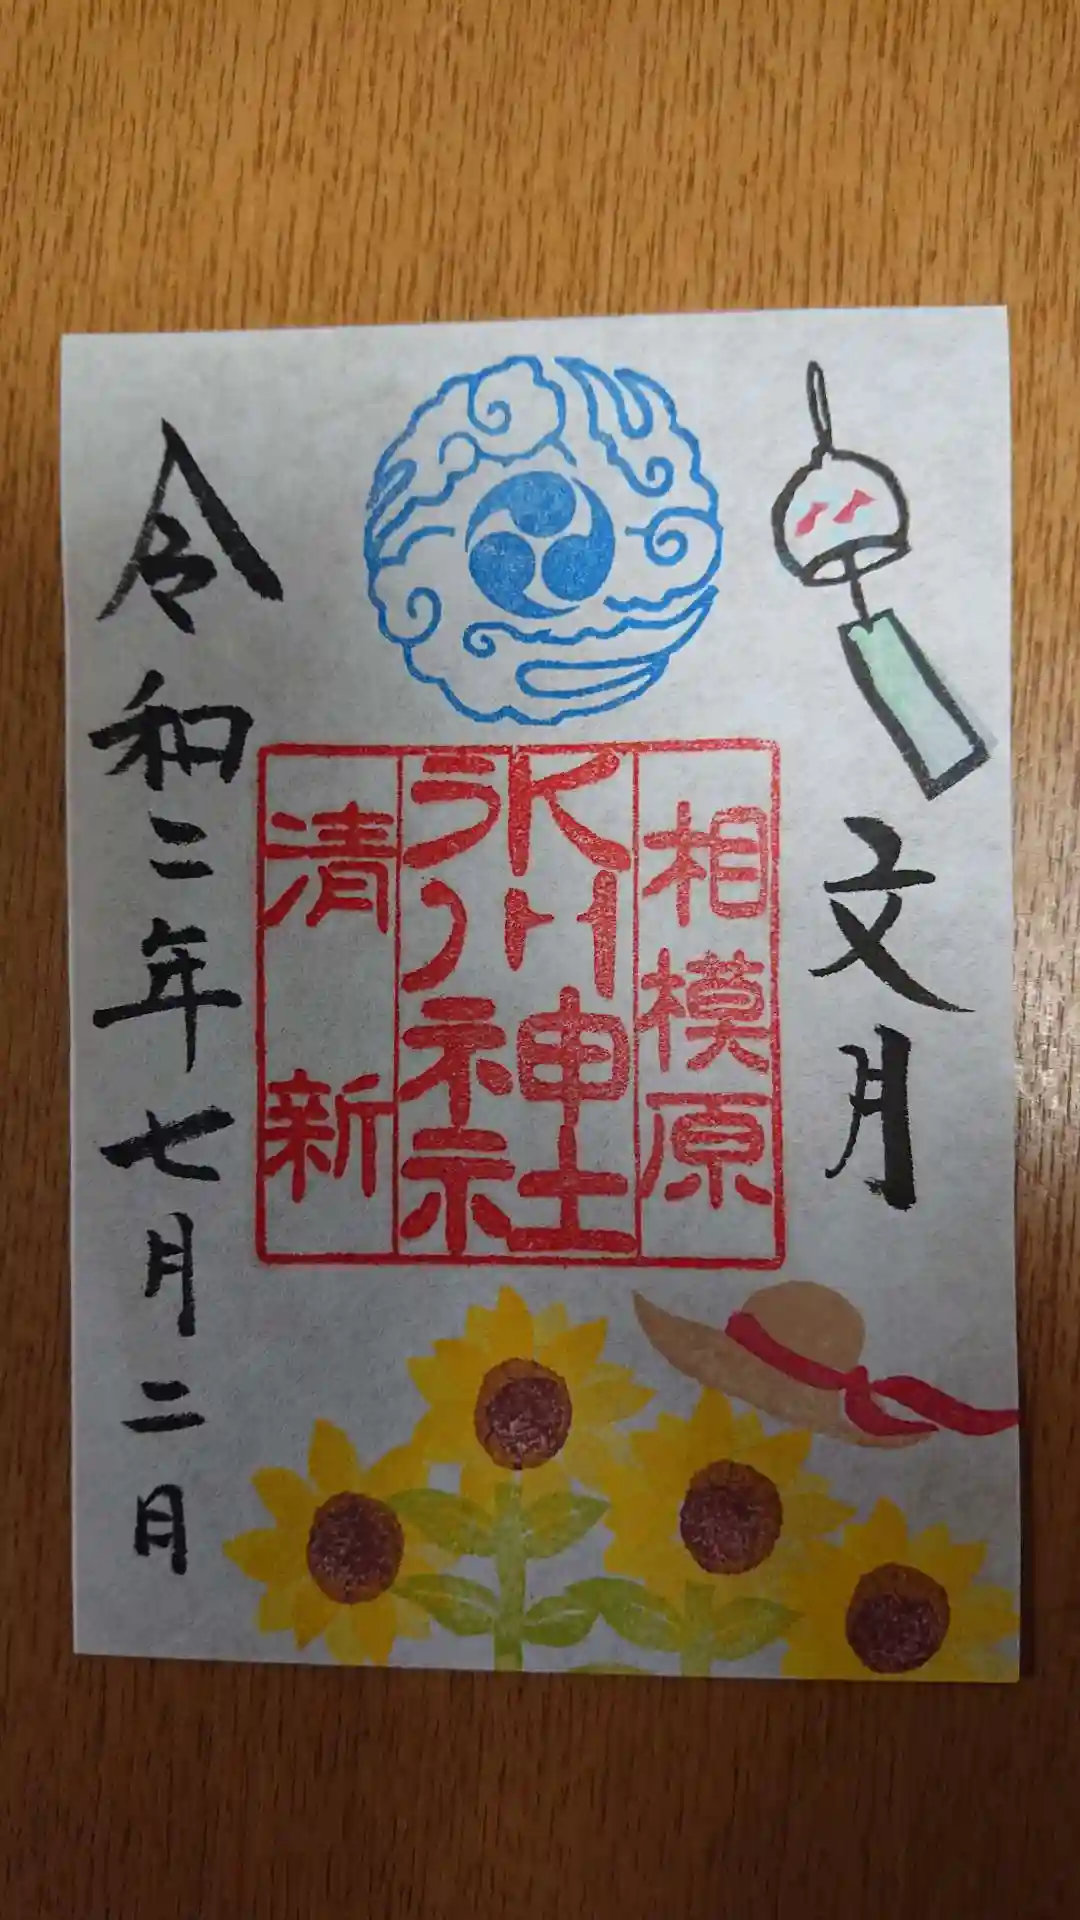 文月
相模原
氷川神社
清新
令和二年七月二日